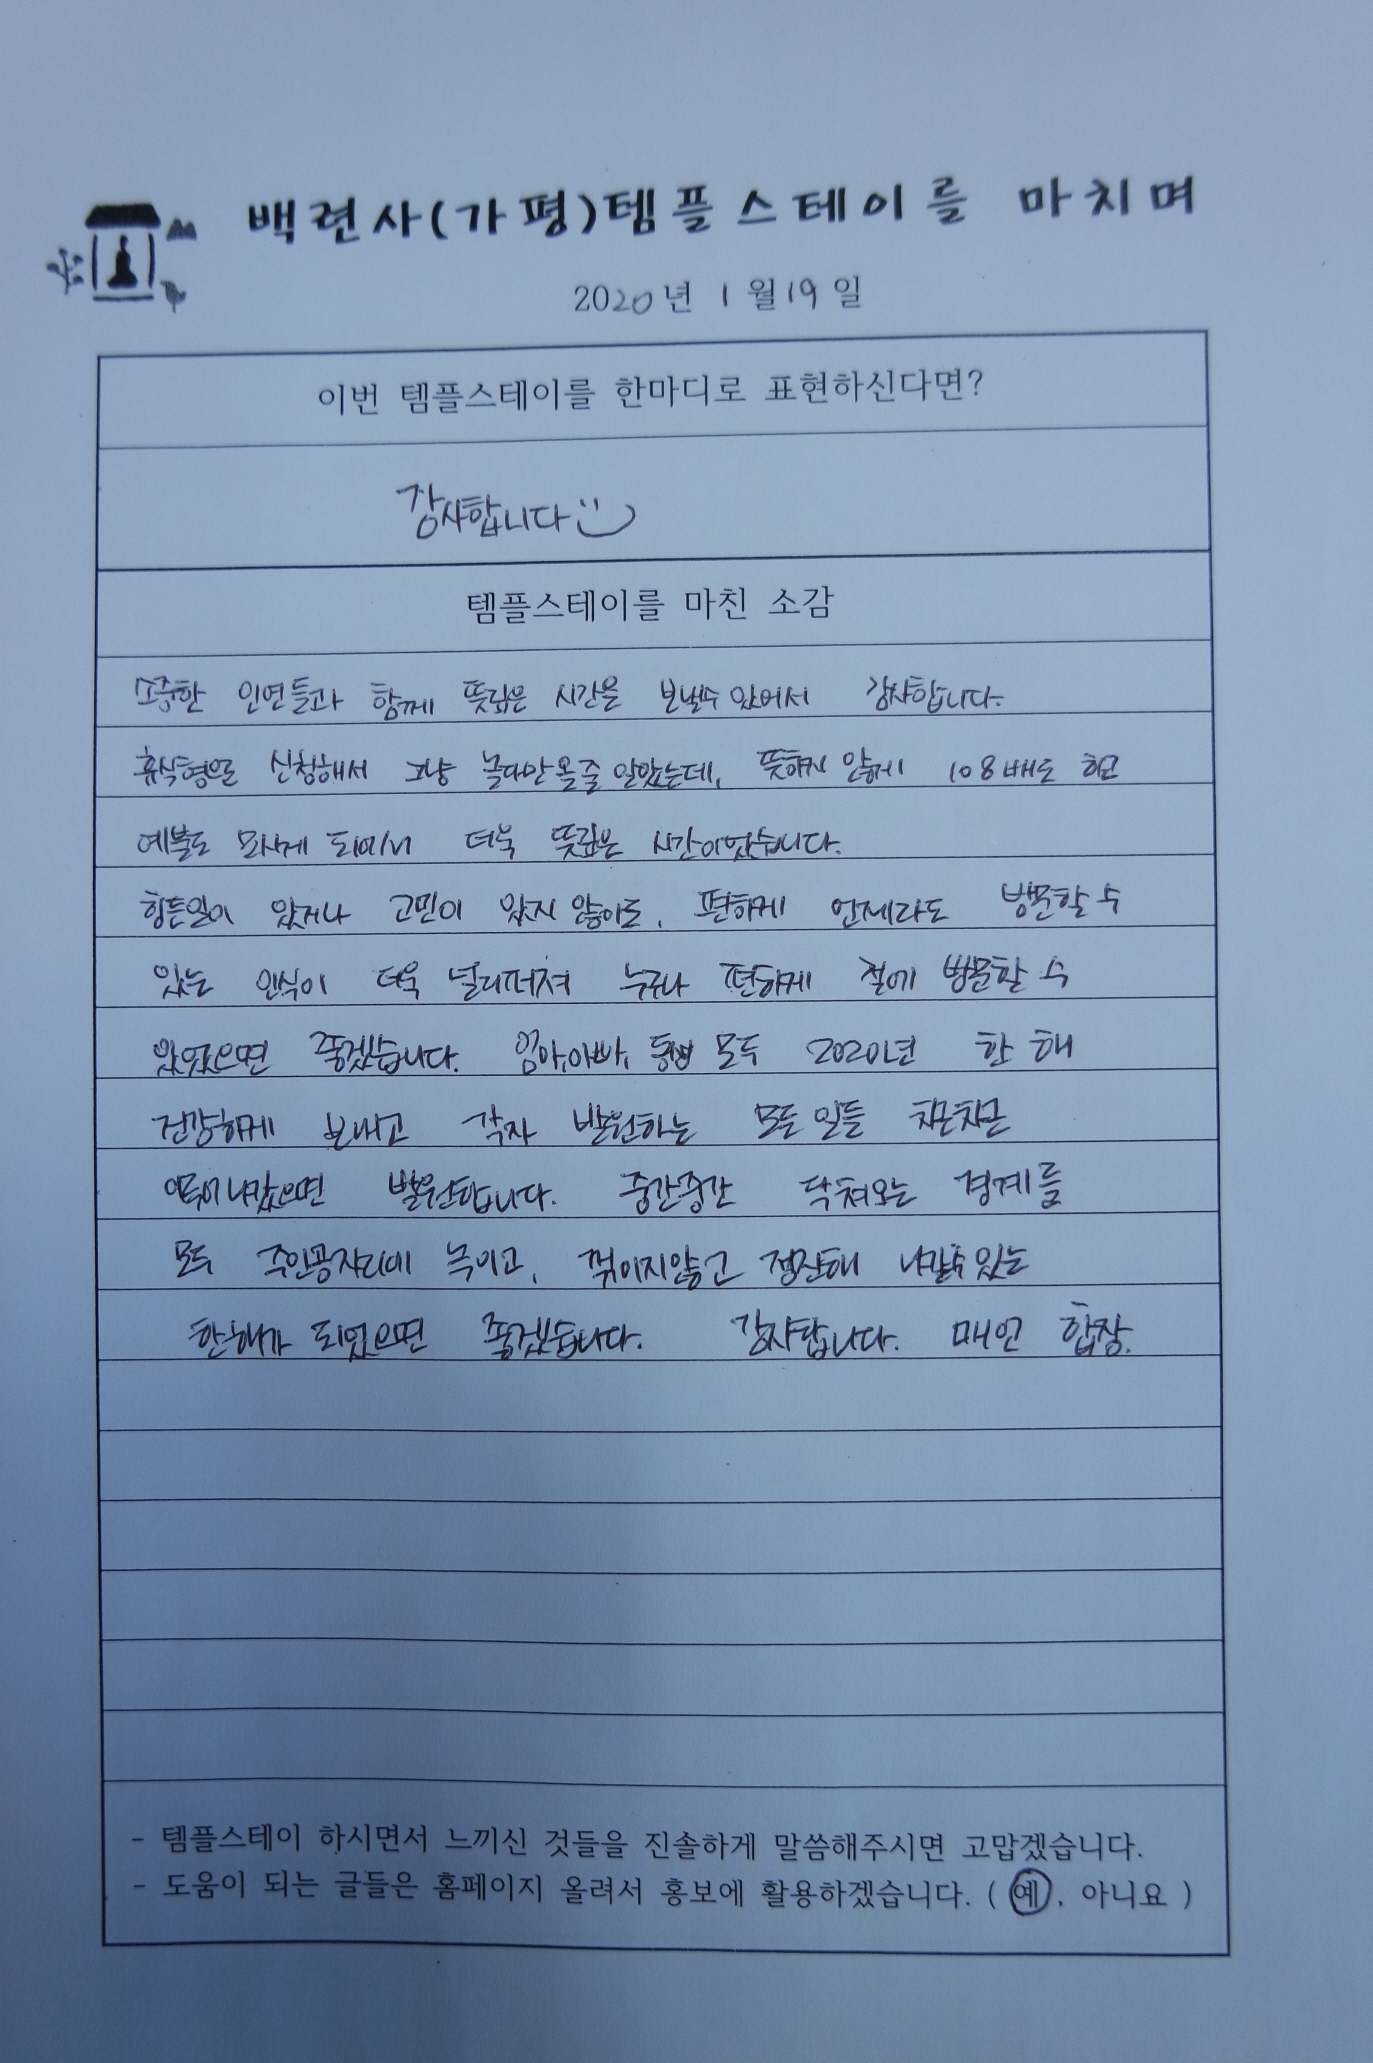 백련사(가평)템플스테이를 마치며
2020년 1월 19일
이번 템플스테이를 한마디로 표현하신다면?
감사합니다
템플스테이를 마친 소감
소중한 인연들과 함께 뜻깊은 시간을 보낼수 있어서 감사합니다.
휴식형으로 신청해서 그냥 놀다만 올 줄 알았는데, 뜻하지 않게 108배도 하고
예불도 모시게 되어서 더욱 뜻깊은 시간이었습니다.
힘든일이 있거나 고민이 있지 않아도, 편하게 언제라도 방문할 수
있는 인식이 더욱 널리퍼져 누구나 편하게 절에 방문할 수
있었으면 좋겠습니다. 엄마,아빠, 모두 2020년 한 해
건강하게 보내고 각자 발원하는 모든 일들 차근차근
나갔으면 발원합니다. 중간중간 닥쳐오는 경계를
모두 주인공자리에 녹이고, 꺾이지않고 정진해 나갈수 있는
한해가 되었으면 좋겠습니다. 감사합니다. 합장.
- 템플스테이 하시면서 느끼신 것들을 진솔하게 말씀해주시면 고맙겠습니다.
- 도움이 되는 글들은 홈페이지 올려서 홍보에 활용하겠습니다. ( 예, 아니요 )